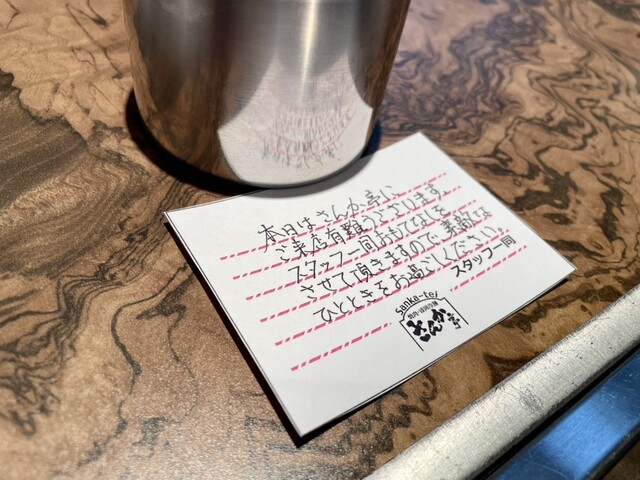 本日はさんか亭に
ご来店有難うございます。
スタッフ一同おもてなしを
させて頂きますので素敵な
ひとときをお過ごしください。
スタッフ一同
sanka-tei
さんか亭